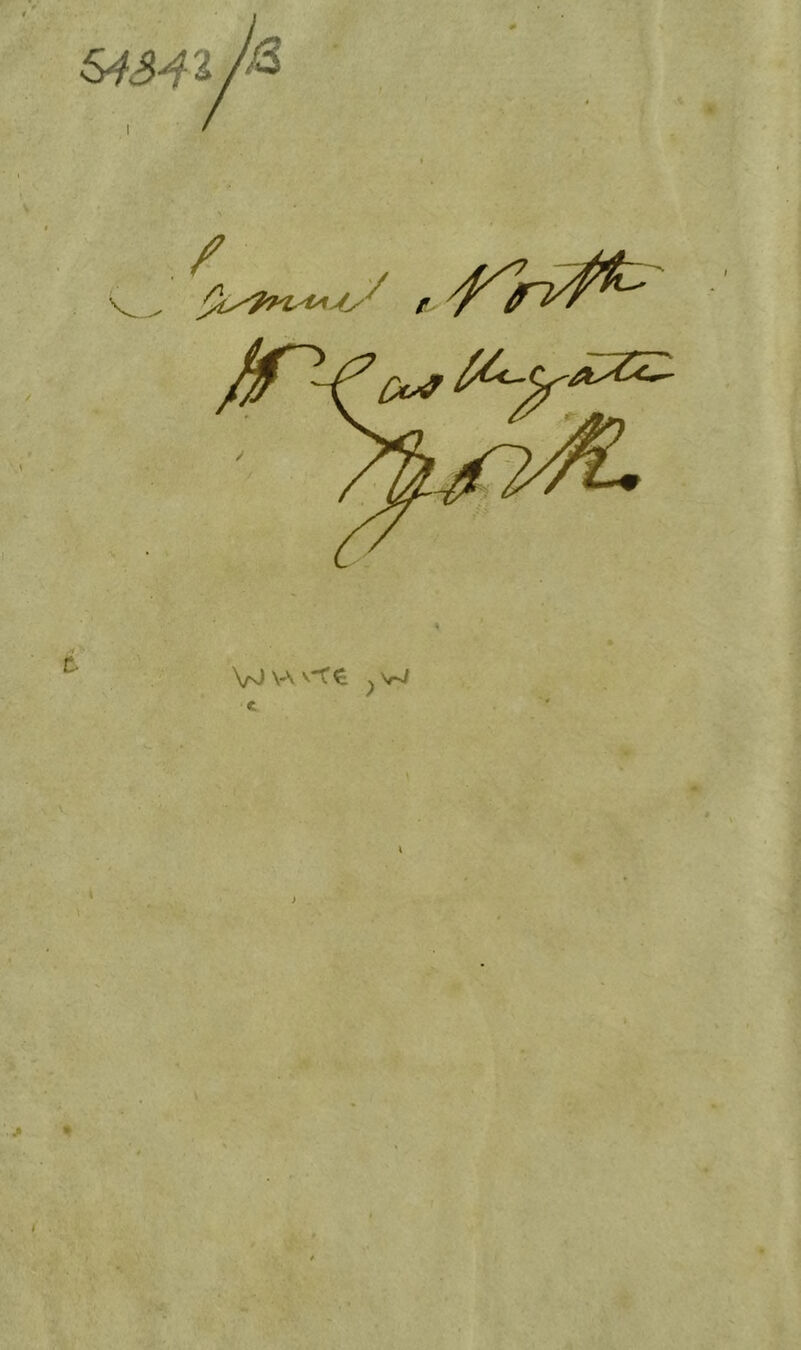 54842/B
Samuel North
Castlegate
York.
WHITE, W